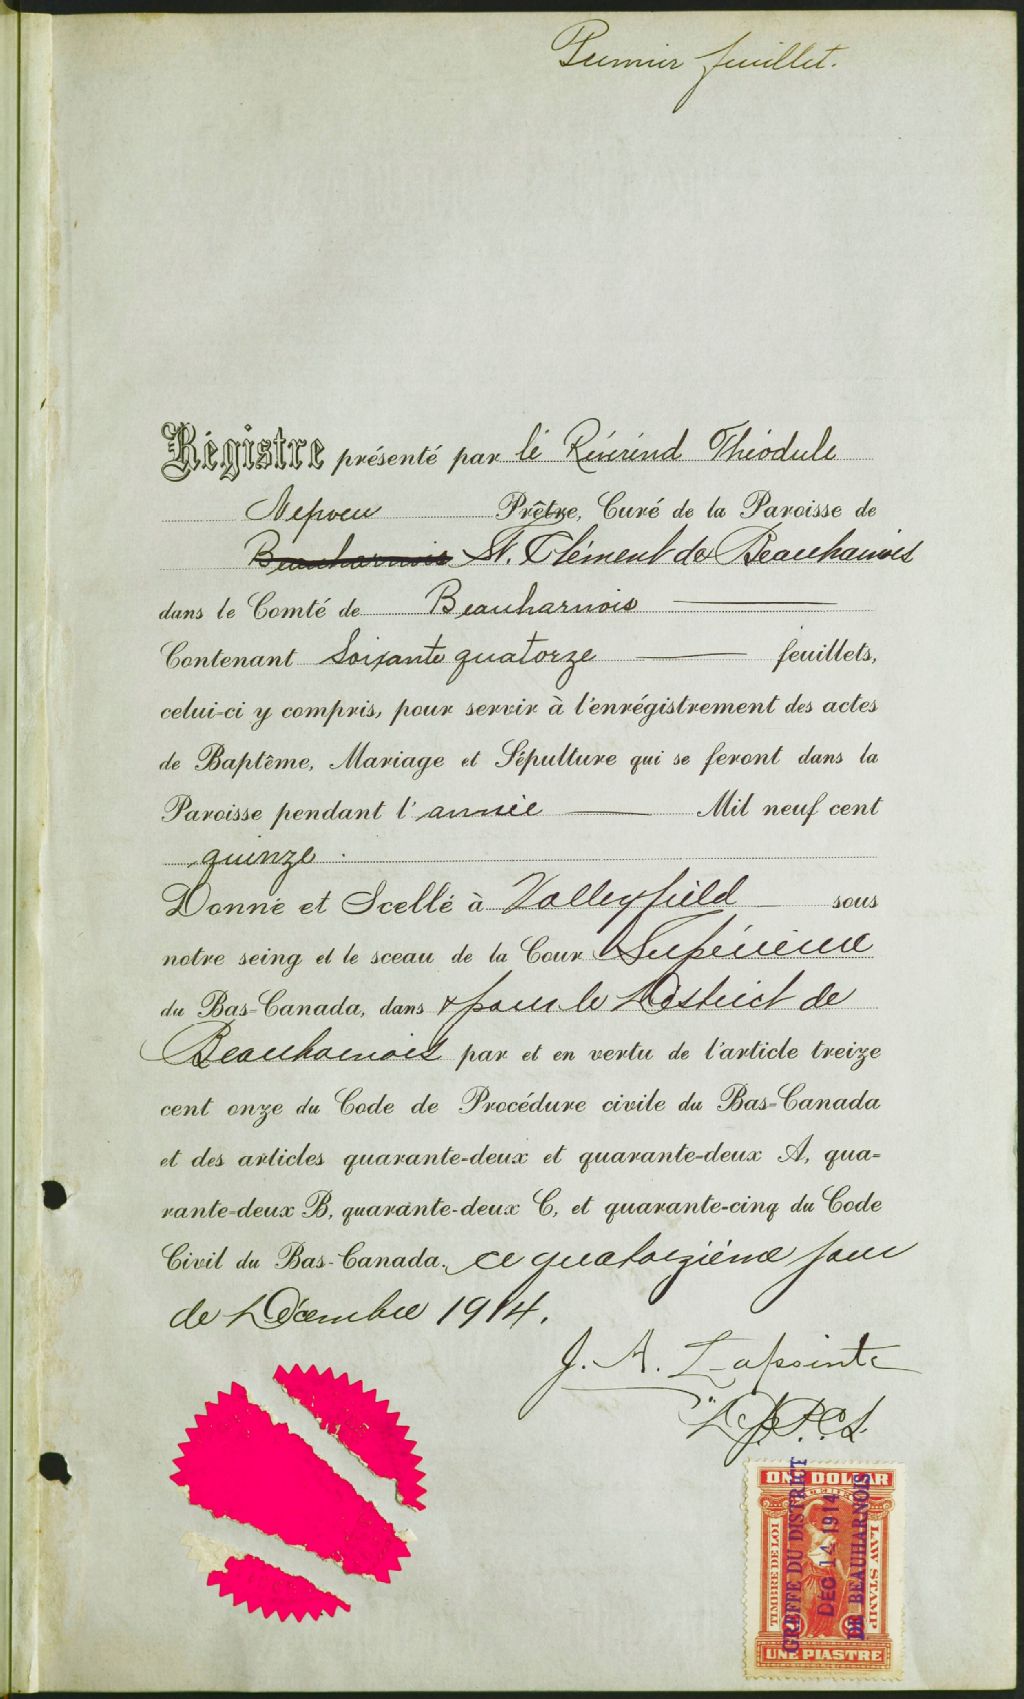 Premier feuillet.
Régistre présenté par le Révérend Théodule
Nepveu Prêtre, Curé de la Paroisse de
Beauharnois St. Clément de Beauharnois
dans le Comté de Beauharnois
Contenant Soixante quatorze feuillets,
celui-ci y compris, pour servir à l'enrégistrement des actes
de Baptême, Mariage et Sépulture qui se feront dans la
Paroisse pendant l'année Mil neuf cent
quinze.
Donné et Scellé à Valleyfield sous
notre seing et le sceau de la Cour Supérieure
du Bas-Canada, dans & pour le District de
Beauharnois par et en vertu de l'article treize
cent onze du Code de Procédure civile du Bas-Canada
et des articles quarante-deux et quarante-deux A, qua-
rante-deux B, quarante-deux C, et quarante-cinq du Code
Civil du Bas-Canada. ce quatorzième jour
de Décembre 1914.
J. A. Lapointe
D.P.C.S.
ONE DOLLAR
TIMBRE DE LOI
LAW STAMP
UNE PIASTRE
GREFFE DU DISTRICT
DEC 14 1914
DE BEAUHARNOIS